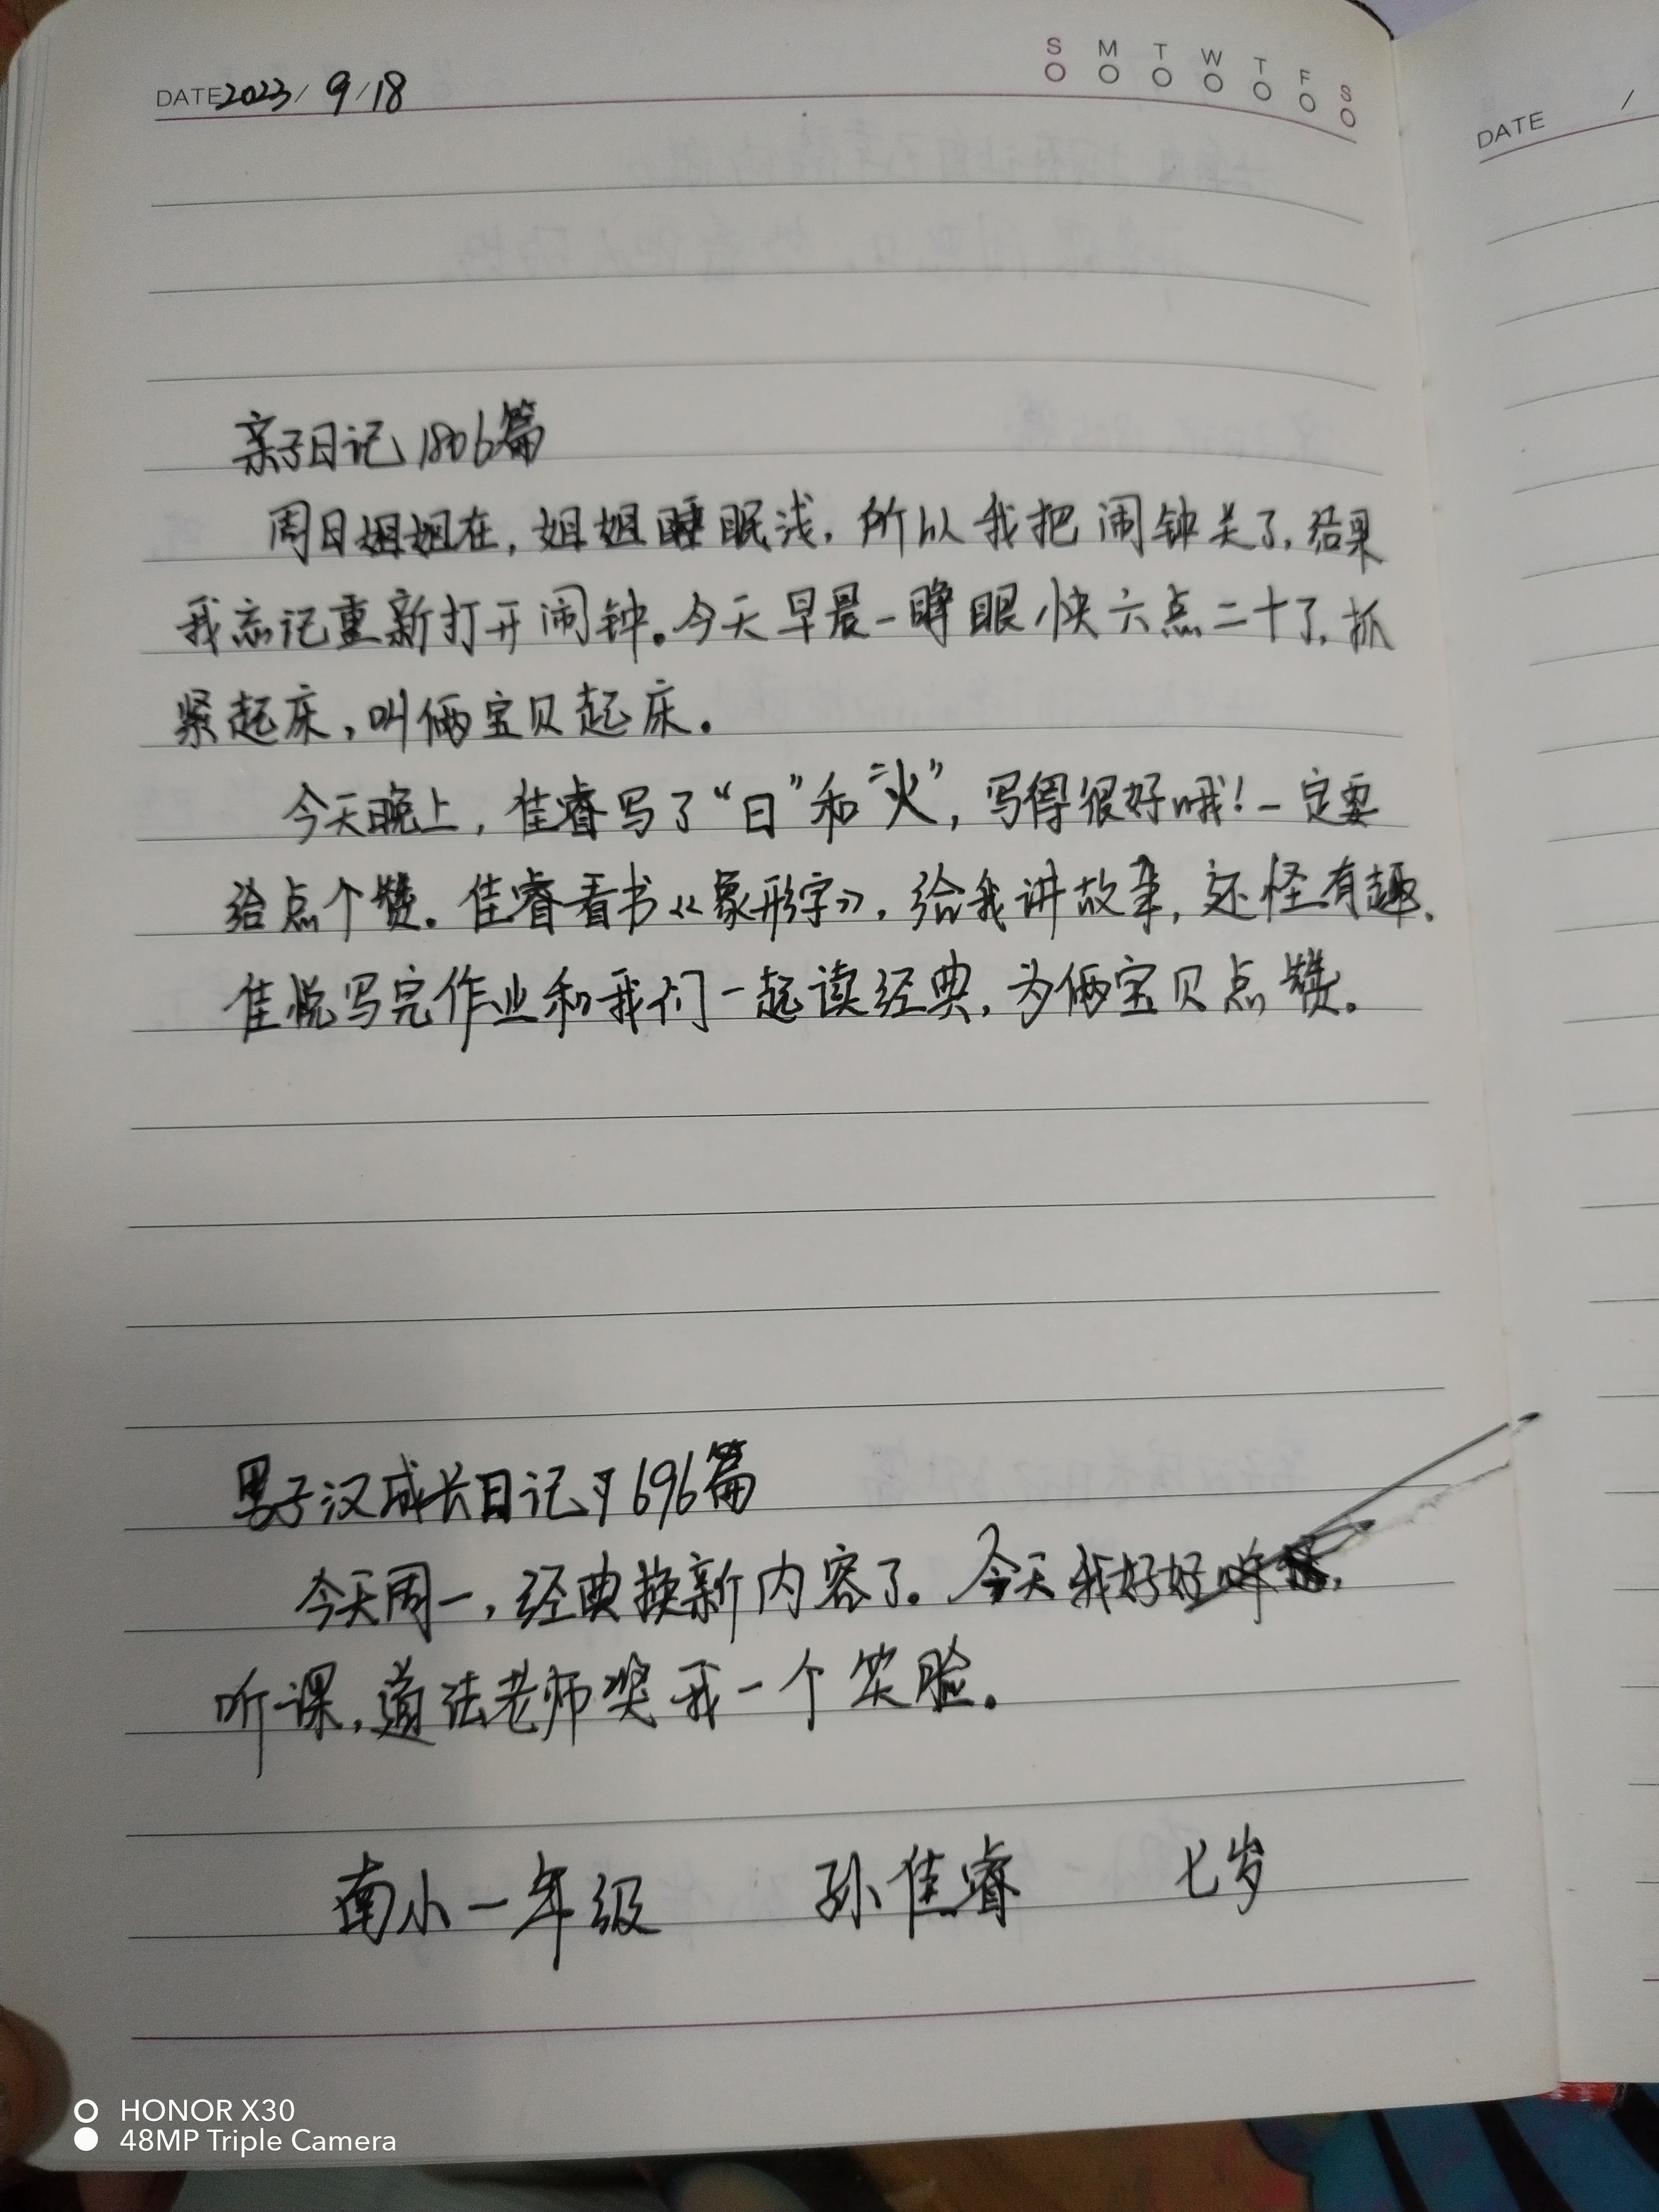 DATE 2023/ 9/18
S M T W T F S
DATE /
亲子日记1806篇
周日姐姐在，姐姐睡眠浅，所以我把闹钟关了，结果
我忘记重新打开闹钟。今天早晨一睁眼快六点二十了，抓
紧起床，叫俩宝贝起床。
今天晚上，佳睿写了“日”和“火”，写得很好哦！一定要
给点个赞。佳睿看书《象形字》，给我讲故事，还怪有趣。
佳悦写完作业和我们一起读经典，为俩宝贝点赞。
男子汉成长日记 696篇
今天周一，经典换新内容了。今天我好好
听课，道法老师奖我一个笑脸。
南小一年级 孙佳睿 七岁
HONOR X30
48MP Triple Camera